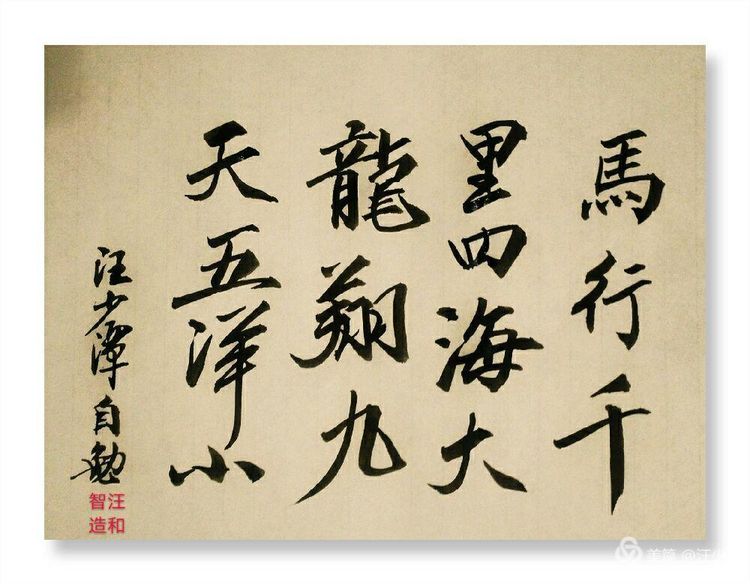 馬行千
里四海大
龍翔九
天五洋小
汪少潭自勉
汪和
智造
美篇 @汪少